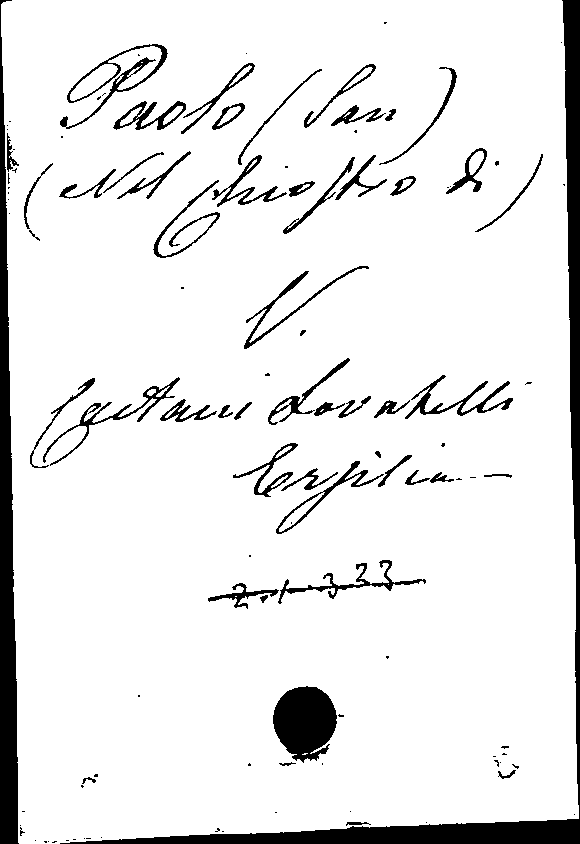 Paolo (San)
(Nel Chiostro di)
V.
Caetani Lovatelli
Ersilia
2.1.333